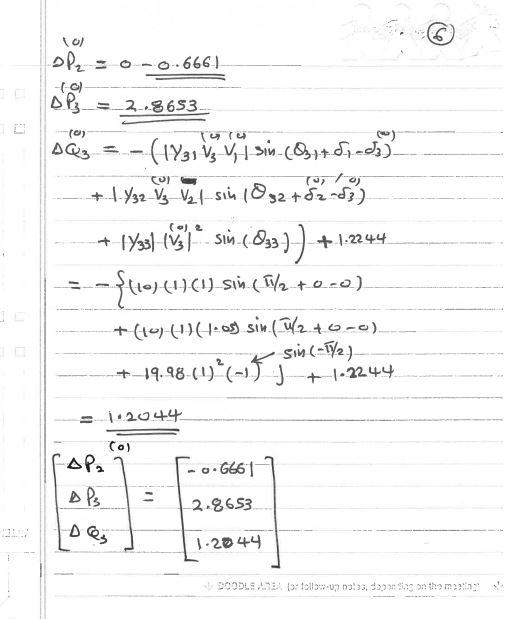 6
ΔP₂⁽⁰⁾ = 0 - 0.6661
ΔP₃⁽⁰⁾ = 2.8653
ΔQ₃⁽⁰⁾ = -(|Y₃₁ V₃⁽⁰⁾ V₁⁽⁰⁾| sin(θ₃₁ + δ₁ - δ₃⁽⁰⁾)
+ |Y₃₂ V₃⁽⁰⁾ V₂| sin(θ₃₂ + δ₂⁽⁰⁾ - δ₃⁽⁰⁾)
+ |Y₃₃| |V₃⁽⁰⁾|² sin(θ₃₃)) + 1.2244
= -{(10)(1)(1) sin(π/2 + 0 - 0)
+ (10)(1)(1.05) sin(π/2 + 0 - 0)
sin(-π/2)
+ 19.98 (1)²(-1)} + 1.2244
= 1.2044
[ΔP₂ ΔP₃ ΔQ₃]⁽⁰⁾ = [-0.6661 2.8653 1.2044]
DOODLE AREA (or follow-up notes, depending on the meeting)